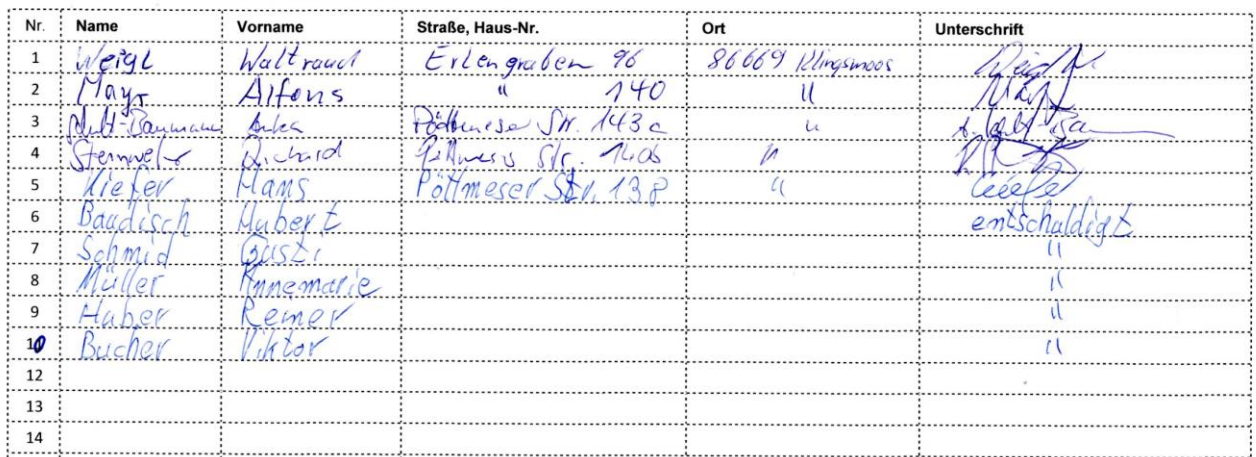 Nr. Name Vorname Straße, Haus-Nr. Ort Unterschrift
1 Weigl Waltraud Erlengraben 96 86669 Klingsmoos
2 Mayr Alfons " 140 "
3 -Baumann Anka Pöttmeser Str. 143c "
4 Richard Pöttmeser Str. "
5 Kiefer Hans Pöttmeser Str. 138 " Kiefer
6 Baudisch Hubert entschuldigt
7 Schmid Gusti "
8 Müller Annemarie "
9 Huber Reiner "
10 Bucher Viktor "
12
13
14